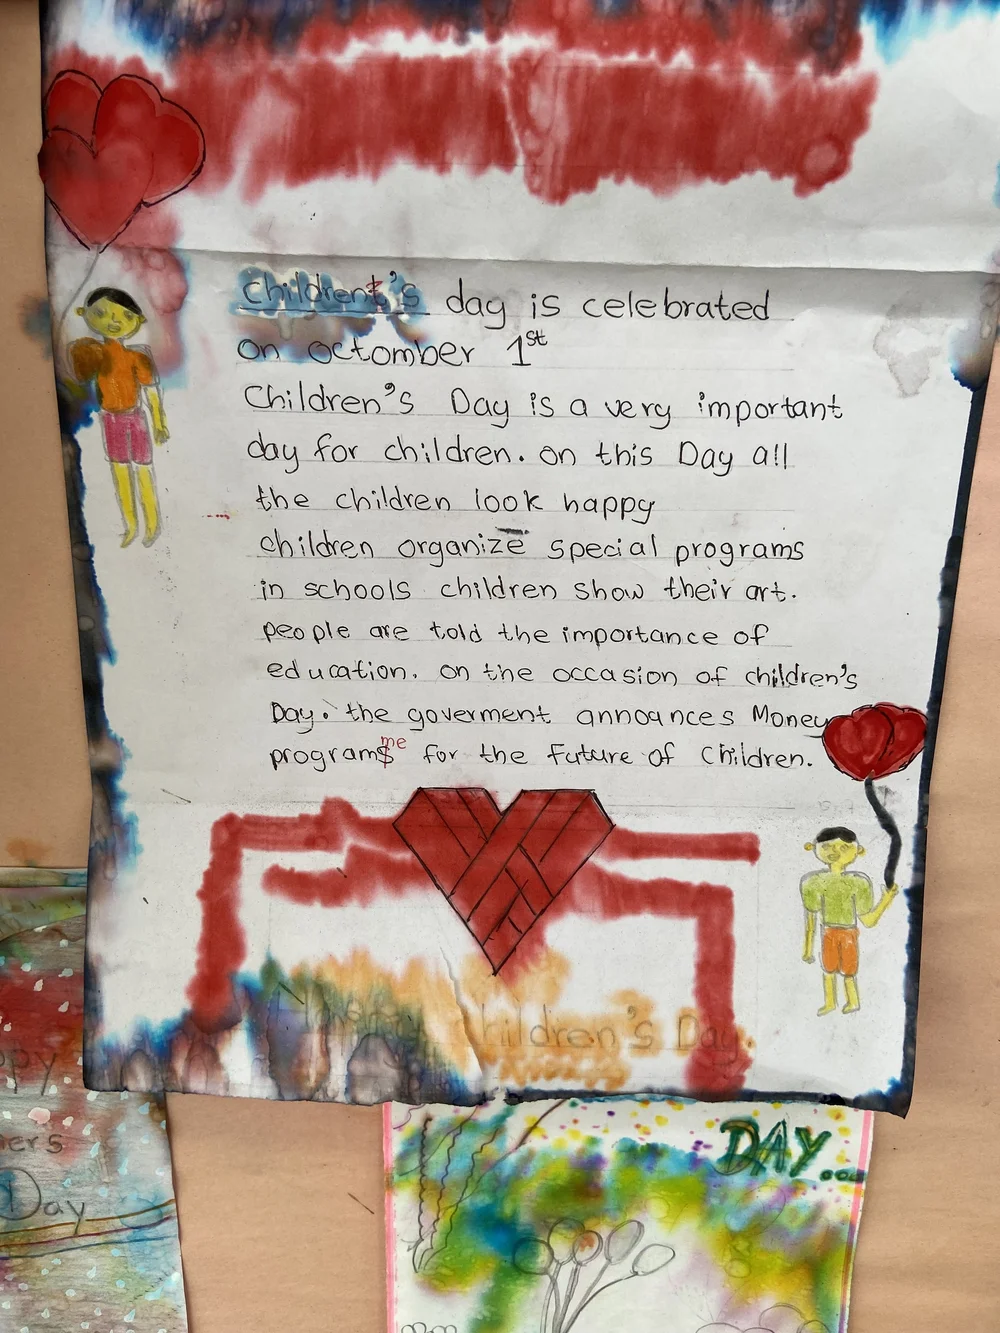 Children's day is celebrated
on octomber 1st
Children's Day is a very important
day for children. on this Day all
the children look happy
children organize special programs
in schools children show their art.
people are told the importance of
education. on the occasion of children's
Day. the goverment annoances Money
programme for the Future of Children.
Children's Day.
DAY...
Day